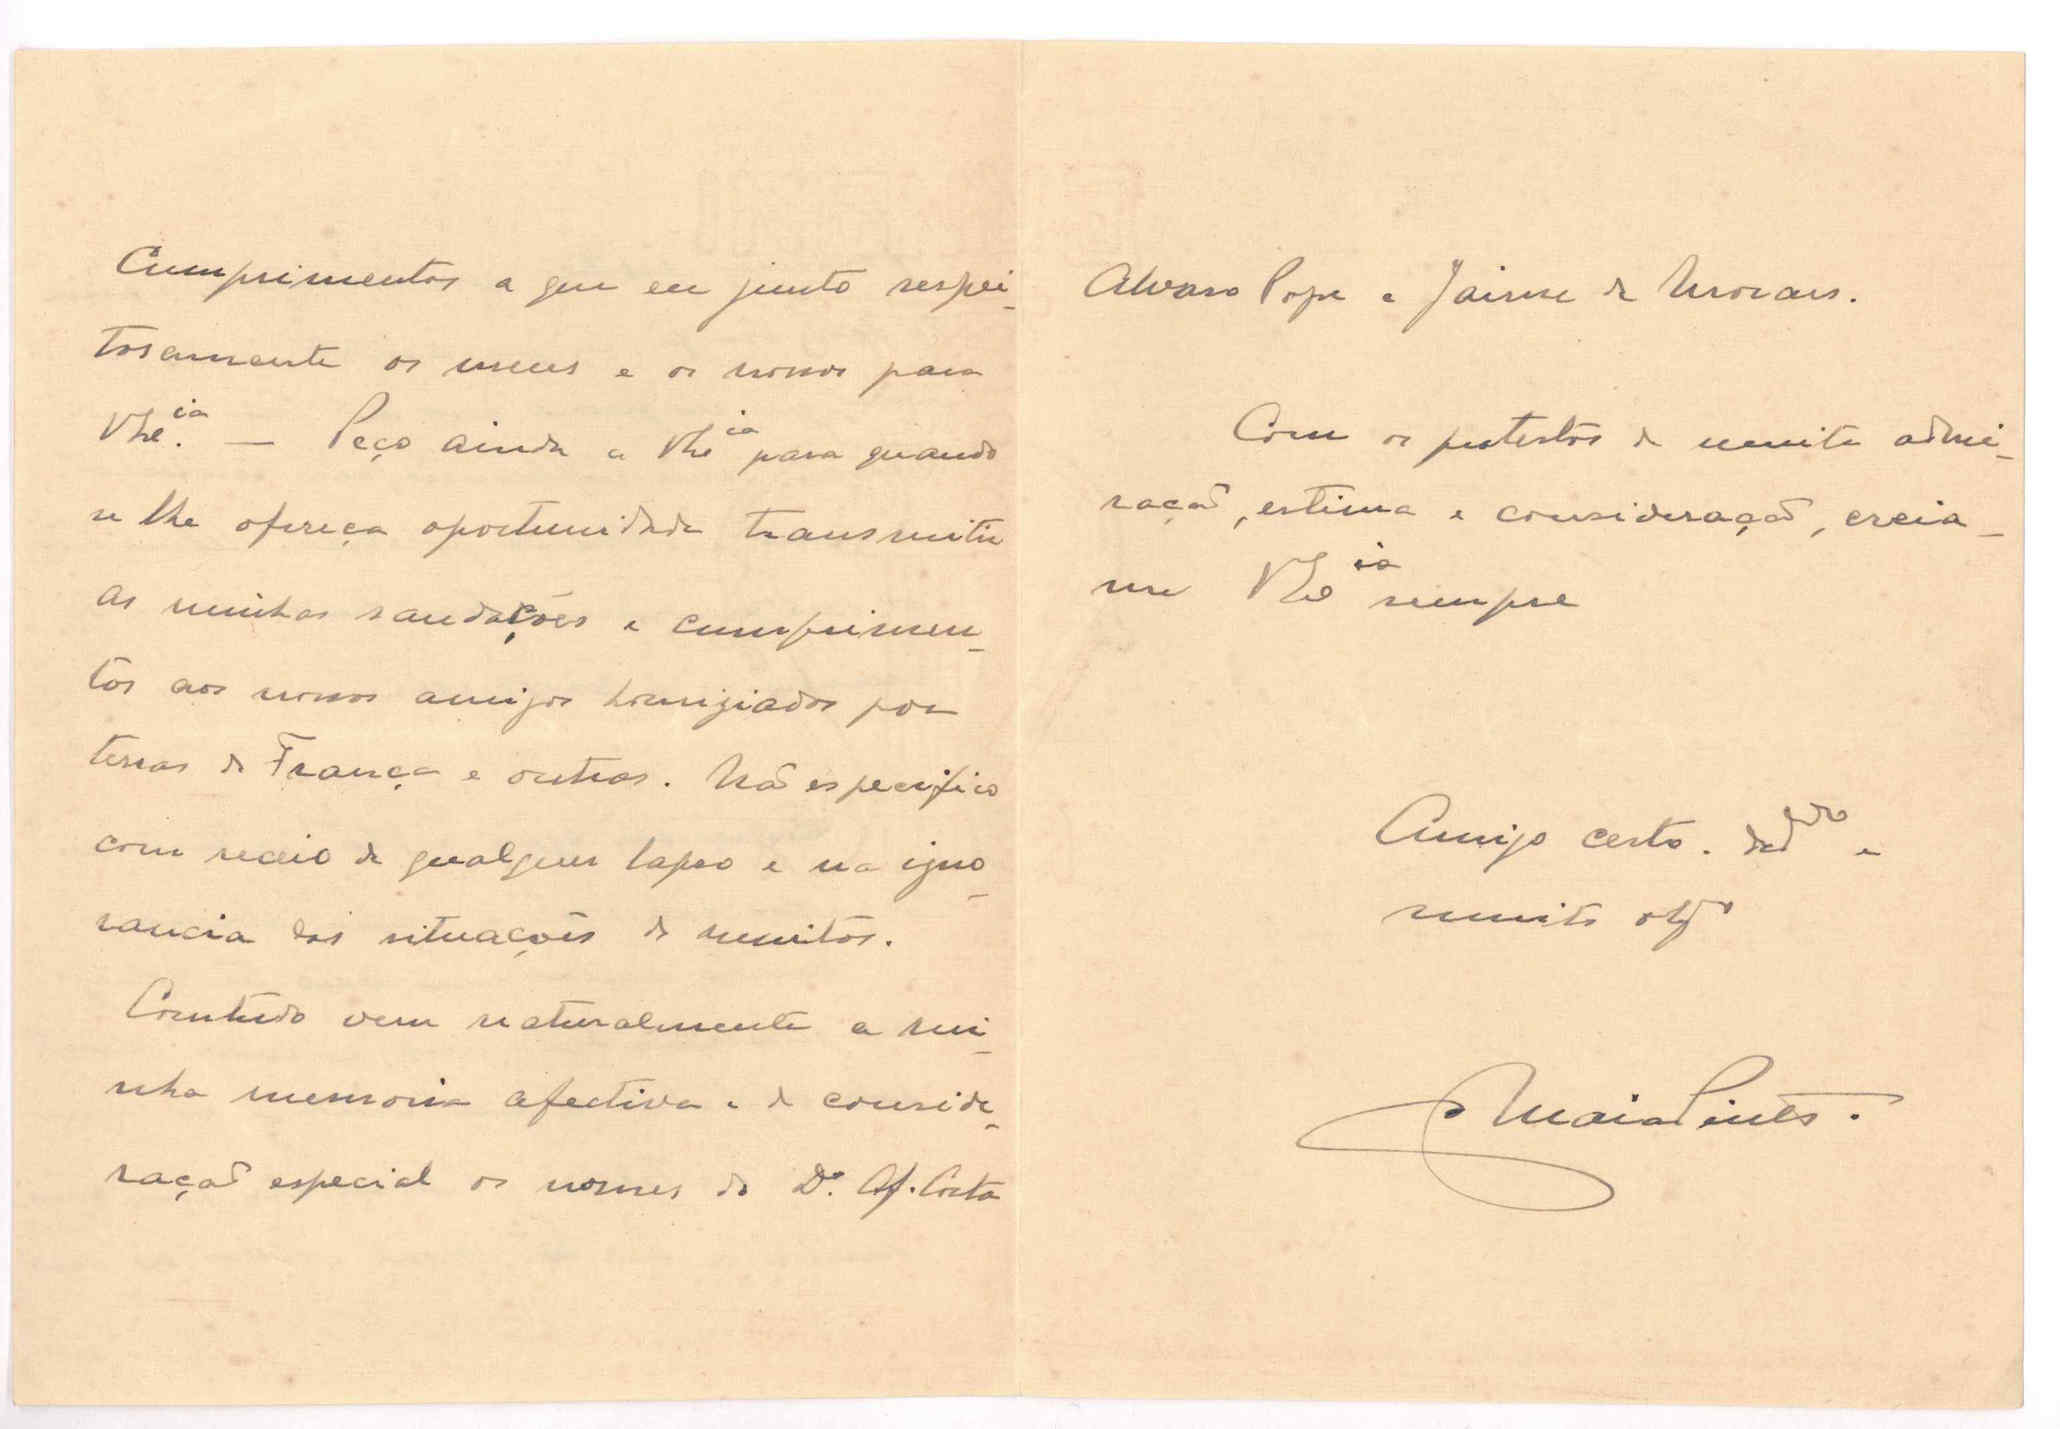 Cumprimentos a que eu junto respei-
tosamente os meus e os nossos para
VExc.ia — Peço ainda a VExc.ia para quando
se lhe ofereça oportunidade transmitir
as minhas saudações e cumprimen-
tos aos nossos amigos homiziados por
terras de França e outras. Não especifico
com receio de qualquer lapso e na igno-
rancia das situações de muitos.
Comtudo vem naturalmente a mi-
nha memoria afectiva e de conside-
ração especial os nomes do Dr. Af. Costa
Alvaro Pope e Jaime de Morais.
Com os protestos de muita admi-
ração, estima e consideração, creia-
me VExc.ia sempre
Amigo certo. dedºdº e
muito obgº
Maia Pinto.